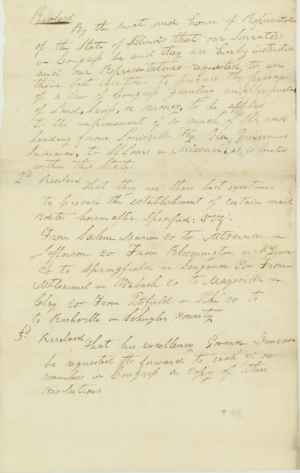 Resolved
By the Senate and house of Representatives
of the State of Illinois that our Senators
in Congress be and they are hereby instructed
and our Representatives requested to use
their best exertions to procure the passage
of a law of Congress granting an appropriation
of Land, Scrip, or money, to be applied
to the improvement of so much of the road
leading from Louisville Ky via Vincennes
Indiana, to St Louis in Missouri, as is located
within this State.
2d Resolved
that they use their best exertions
to procure the establishment of certain mail
routes hereinafter specified, viz:
From Salem Marion Co to Mt Vernon in
Jefferson Co From Bloomington in McLean
Co to Springfield in Sangamon Co From
Mt Carmel in Wabash Co to Maysville in
Clay Co From Pittsfield in Pike Co to
to Rushville in Schuyler County
3d Resolved
that his excellency Governor Duncan
be requested to forward to each of our
members in Congress a copy of these
resolutions